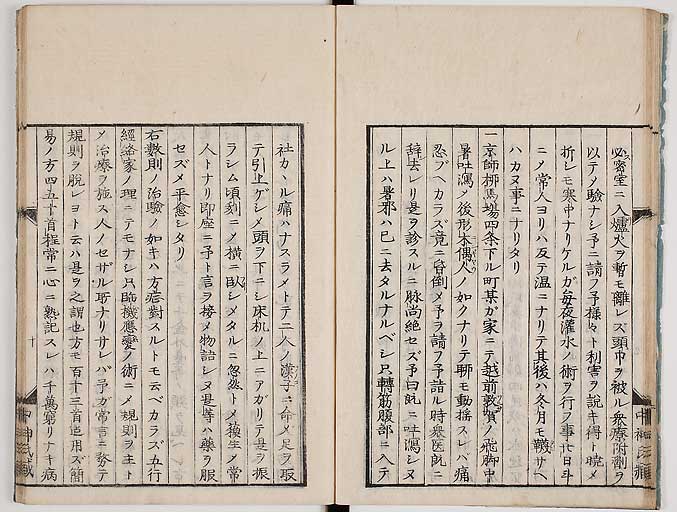 必密室ニ入爐火ヲ暫モ離レズ頭巾ヲ被ル衆療附劑ヲ
以テノ驗ナシ予ニ請フ予様々ト利害ヲ說キ得ト曉メ
折シモ寒中ナリケルガ毎夜灌水ノ術ヲ行フ事廿日斗
ニノ常人ヨリハ反テ温ニナリテ其後ハ冬月モ鞁サヘ
ハカヌ事ニナリタリ
一京師栁馬場四条下ル町某ガ家ニテ越前敦賀ノ飛脚中
暑吐瀉ノ後形木偶人ノ如クナリテ聊モ動揺スレバ痛
忍ブベカラズ竟ニ昏倒メ予ヲ請フ予詣ル時衆医既ニ
辞去レリ是ヲ診スルニ脉尚絶セズ予曰既ニ吐瀉シヌ
ル上ハ暑邪ハ已ニ去タルナルベシ只轉筋腹部ニ入テ
社カヽル痛ハナスラメトテ二人ノ漢子ニ命メ足ヲ取
テ引上ゲシメ頭ヲ下ニシ床机ノ上ニアガリテ是ヲ振
ラシム頃刻ニノ横ニ臥シメタルニ忽然トメ蘓生メ常
人トナリ即座ニ予ト言ヲ接メ物語シヌ是等ハ藥ヲ服
セズメ平愈シタリ
右數則ノ治驗ノ如キハ方證對スルトモ云ベカラズ五行
經絡家ノ理ニテモナシ只臨機應變ノ術ニメ規則ヲ主ト
メ治療ヲ施ス人ノセザル所ナリサレバ予ガ常言ニ務テ
規則ヲ脱レヨト云ハ是ヲ之謂也方モ百十三首迠用ズ簡
易ノ方四五十首程常ニ心ニ熟記スレハ千萬窮リナキ病
十